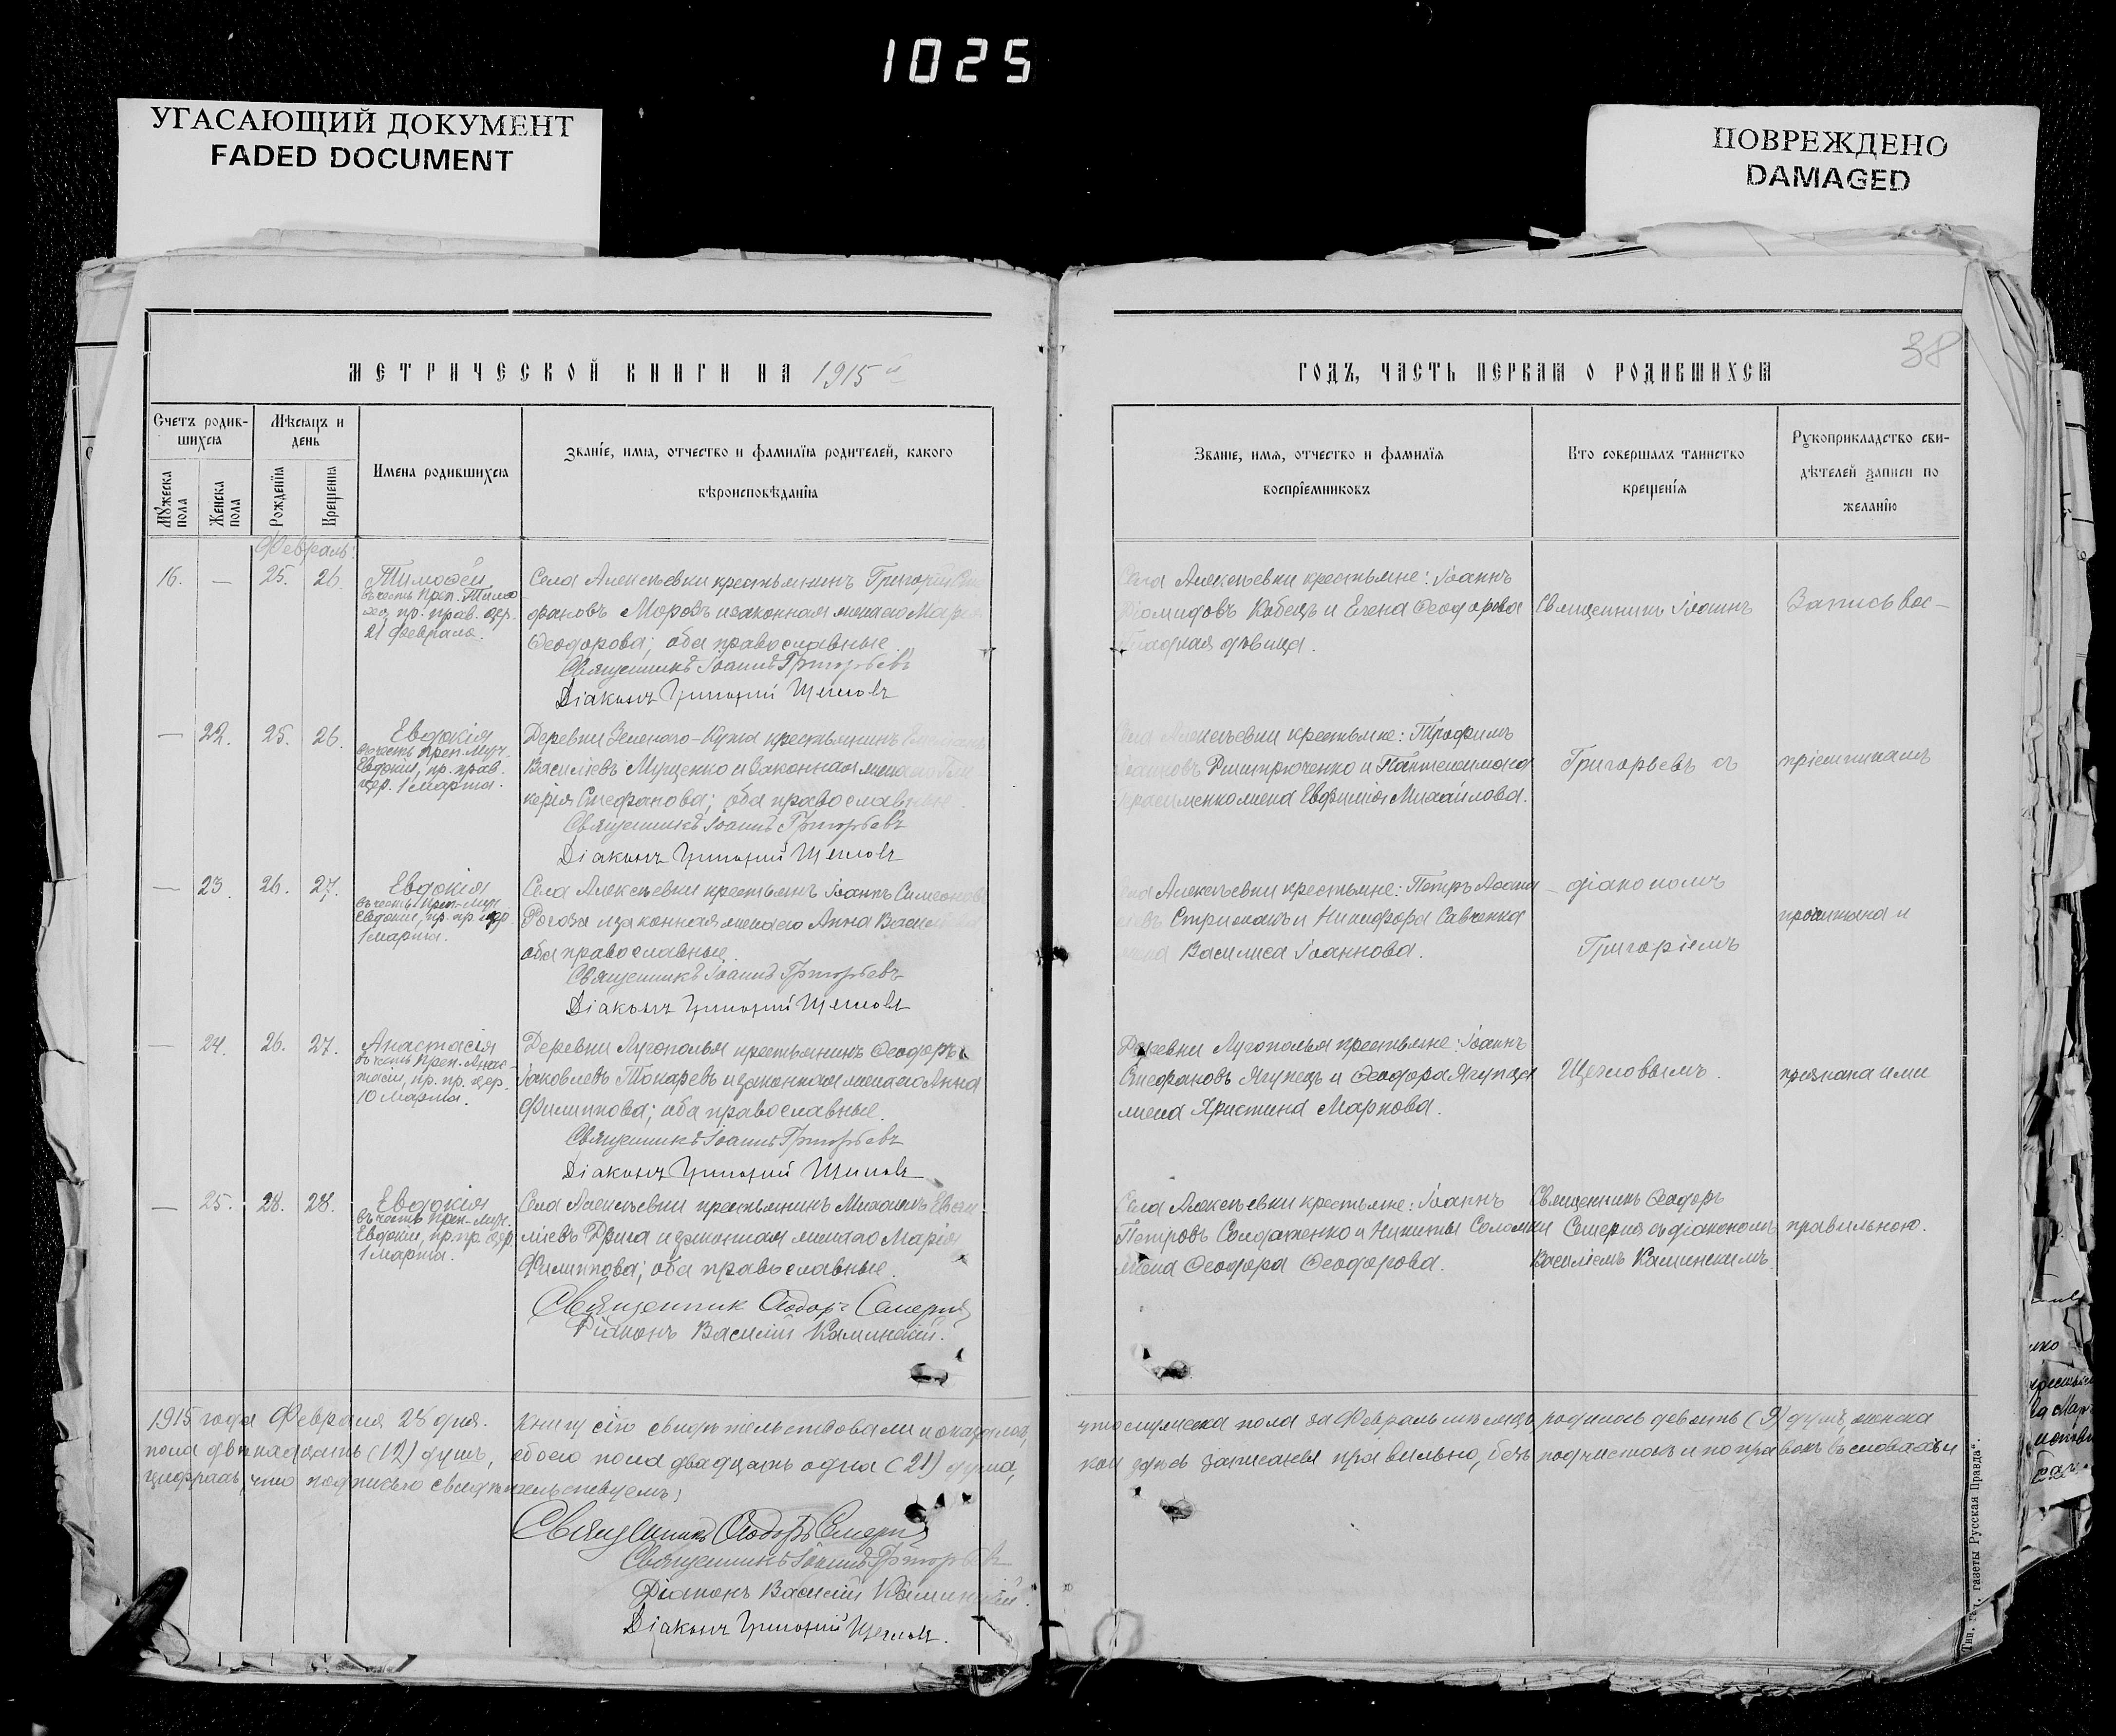 1025
УГАСАЮЩИЙ ДОКУМЕНТ
FADED DOCUMENT
ПОВРЕЖДЕНО
DAMAGED
38
МЕТРИЧЕСКОЙ КНИГИ НА 1915й
ГОДЪ, ЧАСТЬ ПЕРВАЯ О РОДИВШИХСЯ
Счетъ родив-
шихся
Мѣсяцъ и
день
Мужеска
пола
Женска
пола
Рожденія
Крещенія
Имена родившихся
Званіе, имя, отчество и фамилія родителей, какого
вѣроисповѣданія
Званіе, имя, отчество и фамилія
воспріемниковъ
Кто совершалъ таинство
крещенія
Рукоприкладство сви-
дѣтелей записи по
желанію
Февраль:
16. — 25. 26.
Тимоѳей
въ честь Преп. Тимо
ѳея, пр. прав. цер.
21 Февраля.
Села Алексѣевки крестьянинъ Григорій
Моровъ и законная жена его Марія
Ѳеодорова; оба православные.
Священникъ Іоаннъ Григорьевъ
Діаконъ Григорій Щегловъ
Села Алексѣевки крестьяне: Іоаннъ
Діомидовъ Кобецъ и Елена Ѳеодорова
дѣвица.
Священникъ Іоаннъ
Запись вос-
— 22. 25. 26.
Евдокія
въ честь Преп. Муч.
Евдокіи, пр. прав.
цер. 1 марта.
Деревни Зеленаго-Кута крестьянинъ
Василіевъ Мущенко и законная жена его Гли
керія Стефанова; оба православные.
Священникъ Іоаннъ Григорьевъ
Діаконъ Григорій Щегловъ
Села Алексѣевки крестьяне: Трофимъ
Іоанновъ Дмитрюченко и Пантелеимона
Герасименко жена Евфимія Михайлова.
Григорьевъ съ
пріемникамъ
— 23. 26. 27.
Евдокія
въ честь Преп.-Муч.
Евдокіи, пр. пр. цер.
1 марта.
Села Алексѣевки крестьянинъ Іоаннъ Симеоновъ
Рогоза и законная жена его Анна
оба православные.
Священникъ Іоаннъ Григорьевъ
Діаконъ Григорій Щегловъ
Села Алексѣевки крестьяне: Петръ Аѳана-
Стрижакъ и Никифора Савченка
жена Василиса Іоаннова.
діакономъ
Григоріемъ
прочитана и
— 24. 26. 27.
Анастасія
въ честь Преп. Анас-
тасіи, пр. пр. цер.
10 Марта.
Деревни Лугополья крестьянинъ Ѳеодоръ
Іаковлевъ Токаревъ и законная жена его Анна
Филиппова; оба православные.
Священникъ Іоаннъ Григорьевъ
Діаконъ Григорій Щегловъ
Деревни Лугополья крестьяне: Іоаннъ
Стефановъ Ягупецъ и Ѳеодора Ягупца
жена Христина Маркова.
Щегловымъ.
признана ими
— 25. 28. 28.
Евдокія
въ честь Преп.-Муч.
Евдокіи, пр. пр. цер.
1 Марта.
Села Алексѣевки крестьянинъ Михаилъ
Дрига и законная жена его Марія
Филиппова; оба православные.
Священник Ѳеодоръ Семерня
Діаконъ Василій Каминскій.
Села Алексѣевки крестьяне: Іоаннъ
Петровъ Солдатенко и Никиты Соломки
жена Ѳеодора Ѳеодорова.
Священникъ Ѳеодоръ
Семерня съ діакономъ
Василіемъ Каминскимъ.
правильною.
1915 года Февраля 28 дня. Книгу сію свидѣтельствовали и оказалось, что мужеска пола за Февраль мѣсяцъ родилось девять (9) душъ, женска
пола двѣнадцать (12) душъ, обоего пола двадцать одна (21) душа, кои здѣсь записаны правильно, безъ подчистокъ и поправокъ въ словахъ и
цифрахъ, что подписью свидѣтельствуемъ:
Священникъ Ѳеодоръ Семерня
Священникъ Іоаннъ Григорьевъ
Діаконъ Василій Каминскій.
Діаконъ Григорій Щегловъ.
Тип. газеты Русская Правда“.